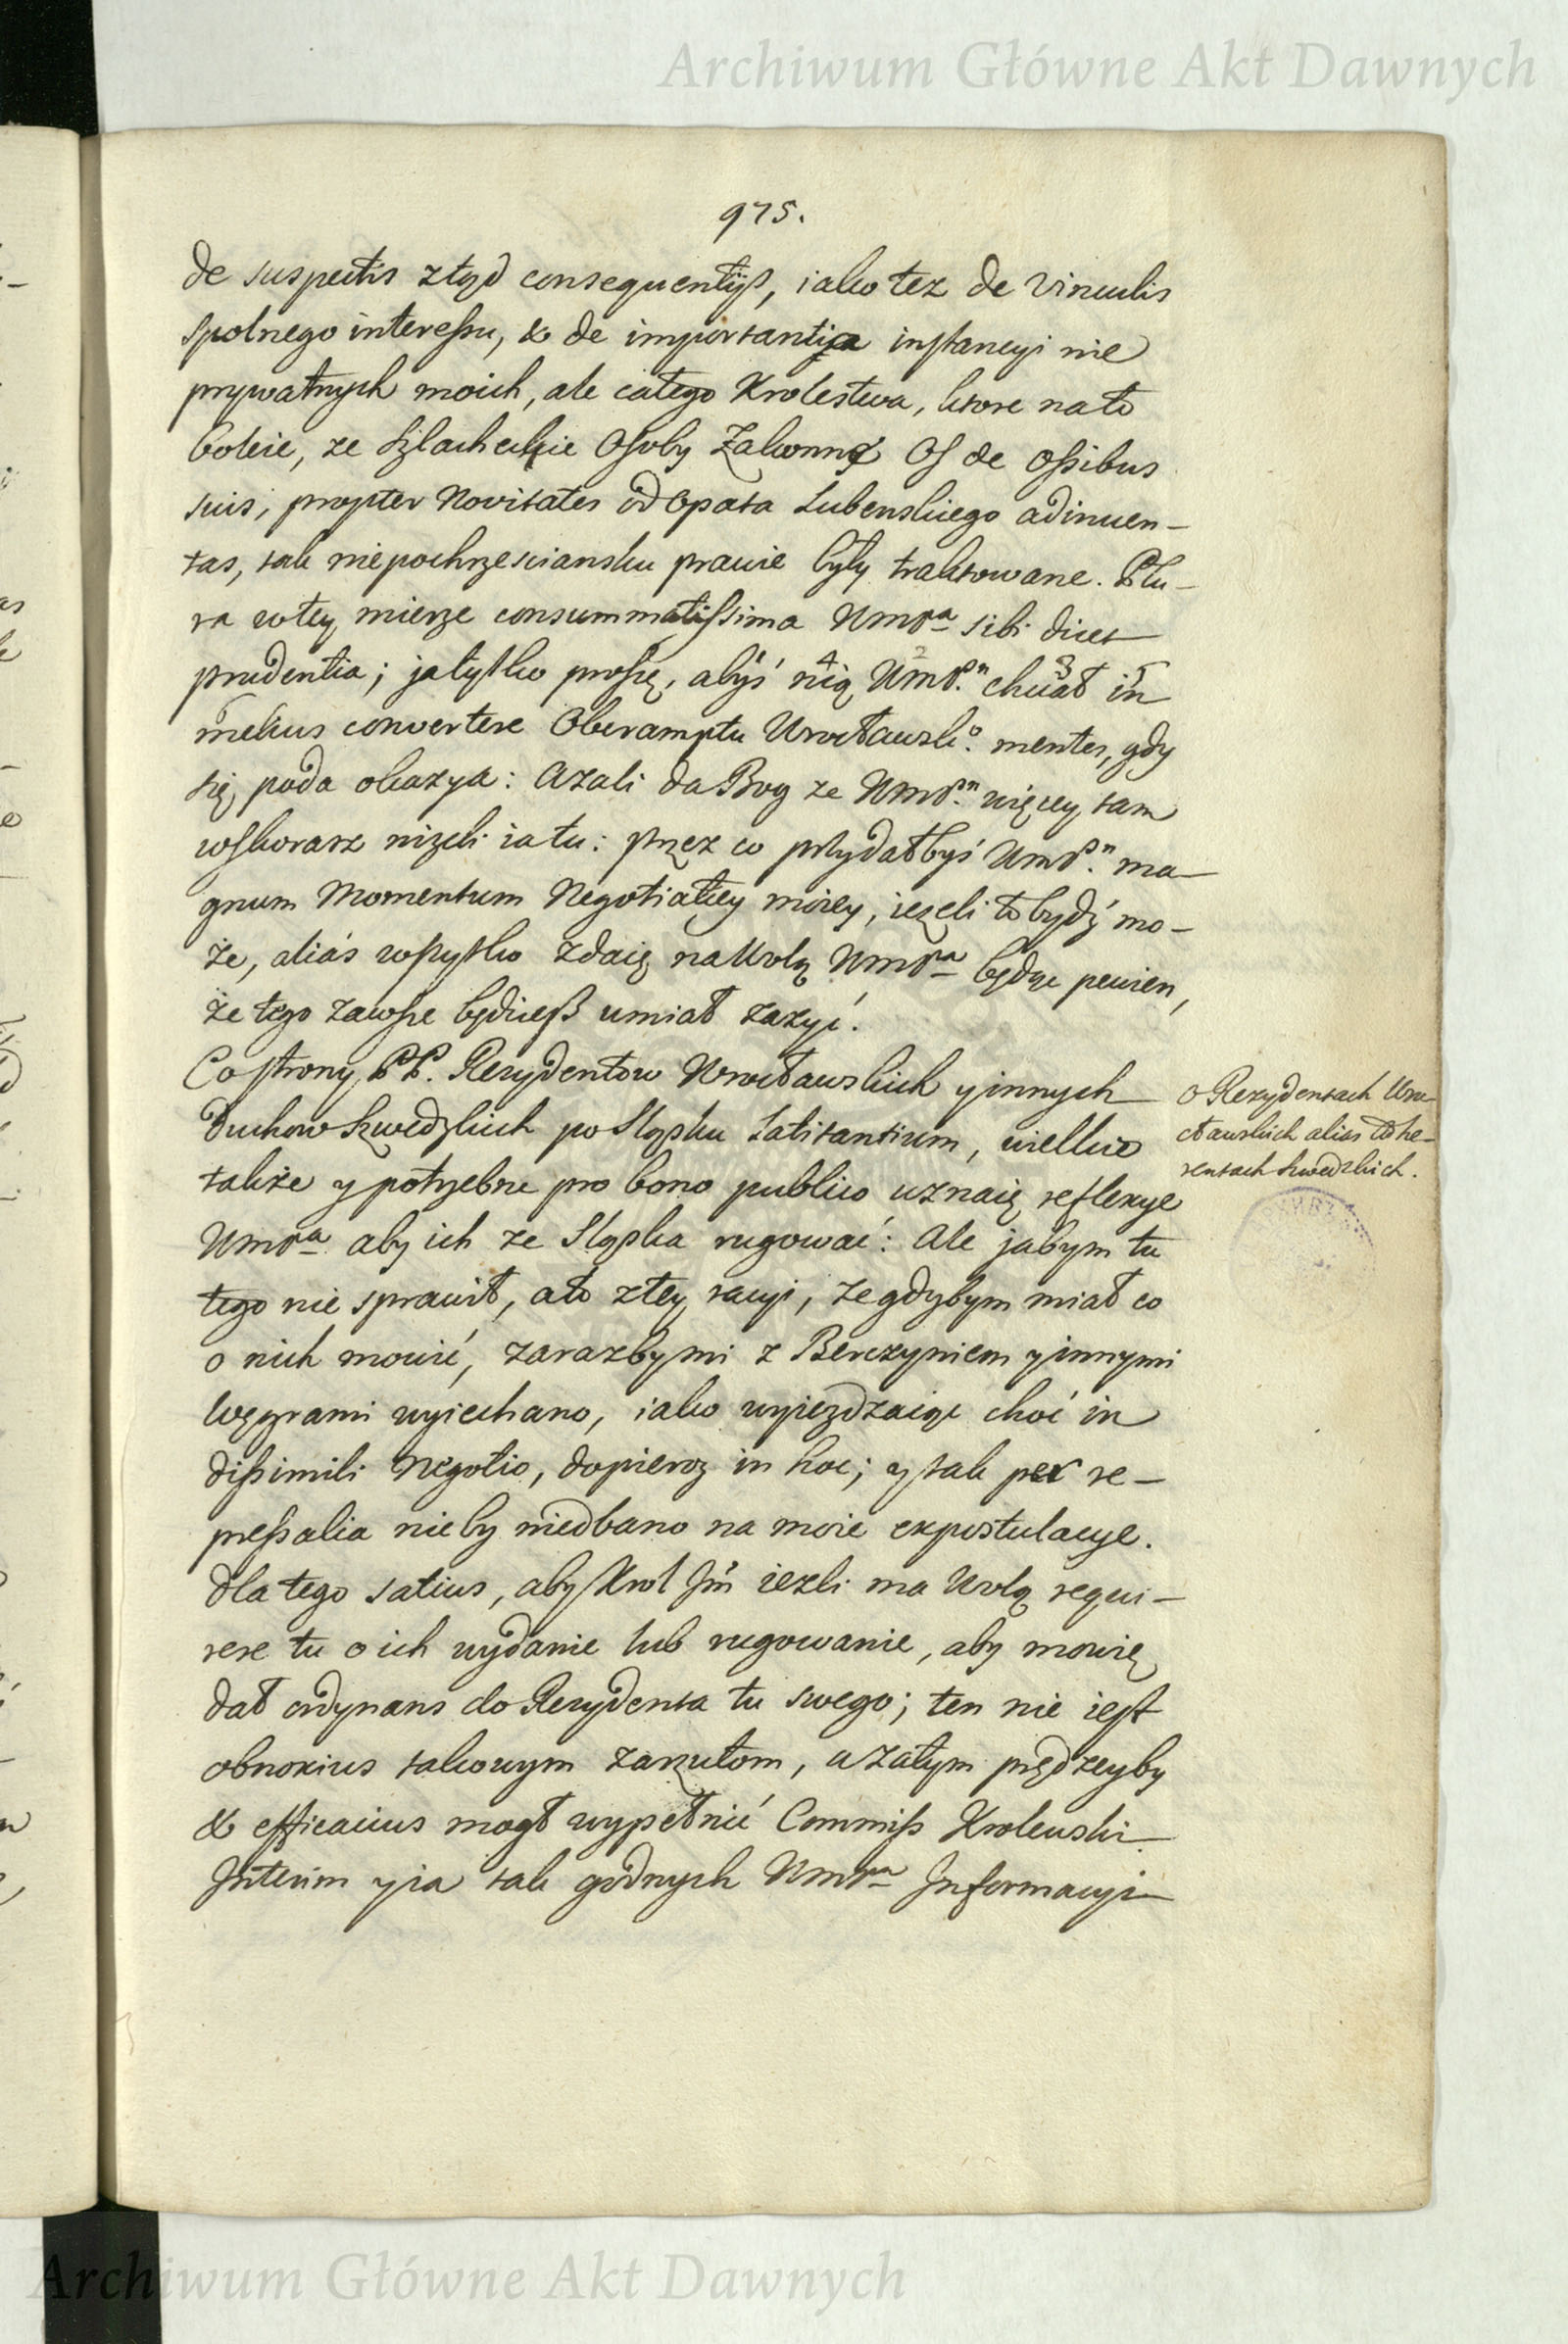 Archiwum Główne Akt Dawnych
975.
de suspectis ztąd consequentijs, iako tez de vinculis
spolnego interessu, & de importantija instancyi nie
prywatnych moich, ale całego Krolestwa, ktore na to
boleie, ze Szlacheckie Osoby Zakonne Os de ossibus
suis, propter Novitates od Opata Lubenskiego adinuen-
tas, tak niepochrzesciansku prawie były traktowane. Plu-
ra wtey mierze consummatissima WmPa sibi dicet
prudentia; ja tylko proszę, abyś nią WmP.n chciał in
melius convertere Oberamptu Wrocławsk.o mentes, gdy
się poda okazya: Azali da Bog ze WmP.n więcey tam
wskorasz nizeli ia tu: przez co przydałbyś WmP.n ma-
gnum Momentum Negotiatiey moiey, iezeli to bydź mo-
że, aliás wszystko zdaię na Wolą WmPa będąc pewien,
że tego zawsze będziesz umiał zazyć.
Co strony PP. Rezydentow Wrocławskich y innych
Duchow Szwedzkich po Sląsku Latitantium, wielkie
także y potrzebne pro bono publico uznaię reflexye
WmPa aby ich ze Sląska rugować: Ale jabym tu
tego nie sprawił, a to ztey racyi, ze gdybym miał co
o nich mowić, zarazby mi z Berczyniem y innymi
Węgrami wyiechano, iako wyiezdzaiąc choć in
dissimili Negotio, dopieroz in hoc; y tak per re-
pressalia nie by niedbano na moie expostulacye.
Dla tego satius, aby Krol Jm iezli ma Wolą requi-
rere tu o ich wydanie lub rugowanie, aby mowię
dał ordynans do Rezydenta tu swego; ten nie iest
obnoxius takowym zarzutom, a zatym prędzeyby
& efficacius mogł wypełnić Commiss Krolewski.
Interim y ia tak godnych WmPa Informacyi
o Rezydentach Wro-
cławskich alias Adhe-
rentach Szwedzkich.
Archiwum Główne Akt Dawnych